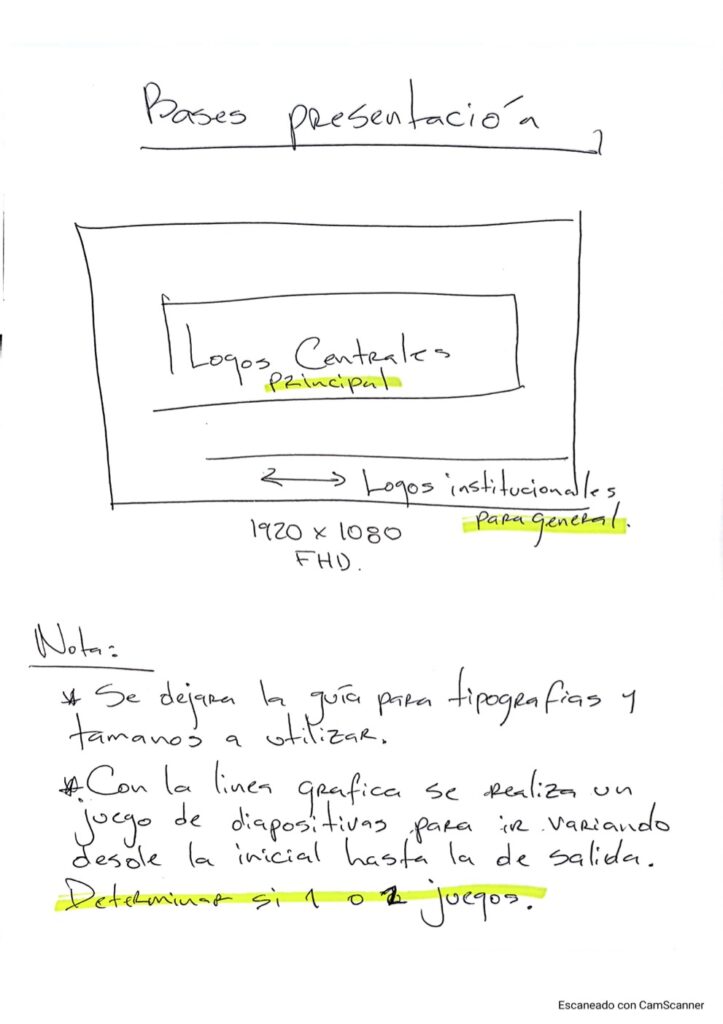 Bases presentación
Logos Centrales
principal
Logos institucionales
para general.
1920 x 1080
FHD.
Nota:
* Se dejara la guía para tipografias y
tamanos a utilizar.
* Con la linea grafica se realiza un
juego de diapositivas para ir variando
desde la inicial hasta la de salida.
Determinar si 1 o 2 juegos.
Escaneado con CamScanner